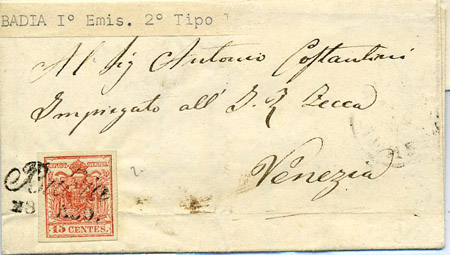 BADIA I° Emis. 2° Tipo
Al Sig Antonio Costantini
Impiegato all' I. R Zecca
Venezia
Badia
28 AGO.
15 CENTES.